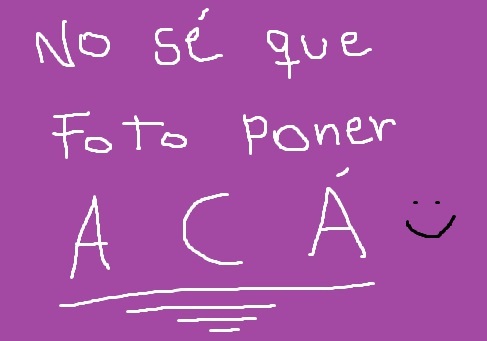 No sé que
Foto poner
ACÁ